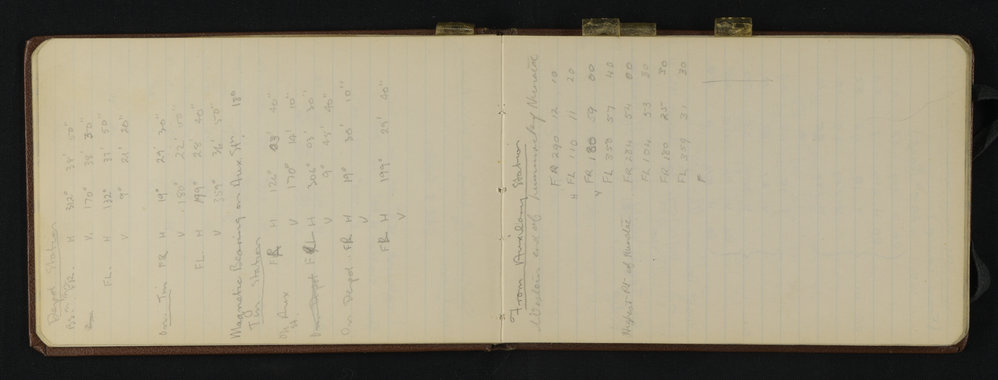 Depot Station
FR. H 312° 38' 50"
V. 170° 38' 30"
FL. H 132° 39' 50"
V. 9° 21' 20"
On Tin FR H. 19° 29' 30"
V. 180° 22' 50"
FL. H 199° 28' 40"
V 359° 36' 50"
Magnetic Bearing on Aux. Stn. 130
Tin Station
On Aux FR H 126° 03' 40"
St V 170° 14' 10"
FL H 306° 03' 30"
V 9° 45' 40"
On Depot FR H 19° 30' 10"
V
FR H 199° 29' 40"
V
From Auxiliary Station
Western end of Nunatak
FR 290 12 10
H FL 110 11 20
V FR 180 59 00
FL 358 57 40
Highest Pt. of Nunatak FR 284 54 00
FL 104 53 30
FR 180 25 30
FL 359 31 30